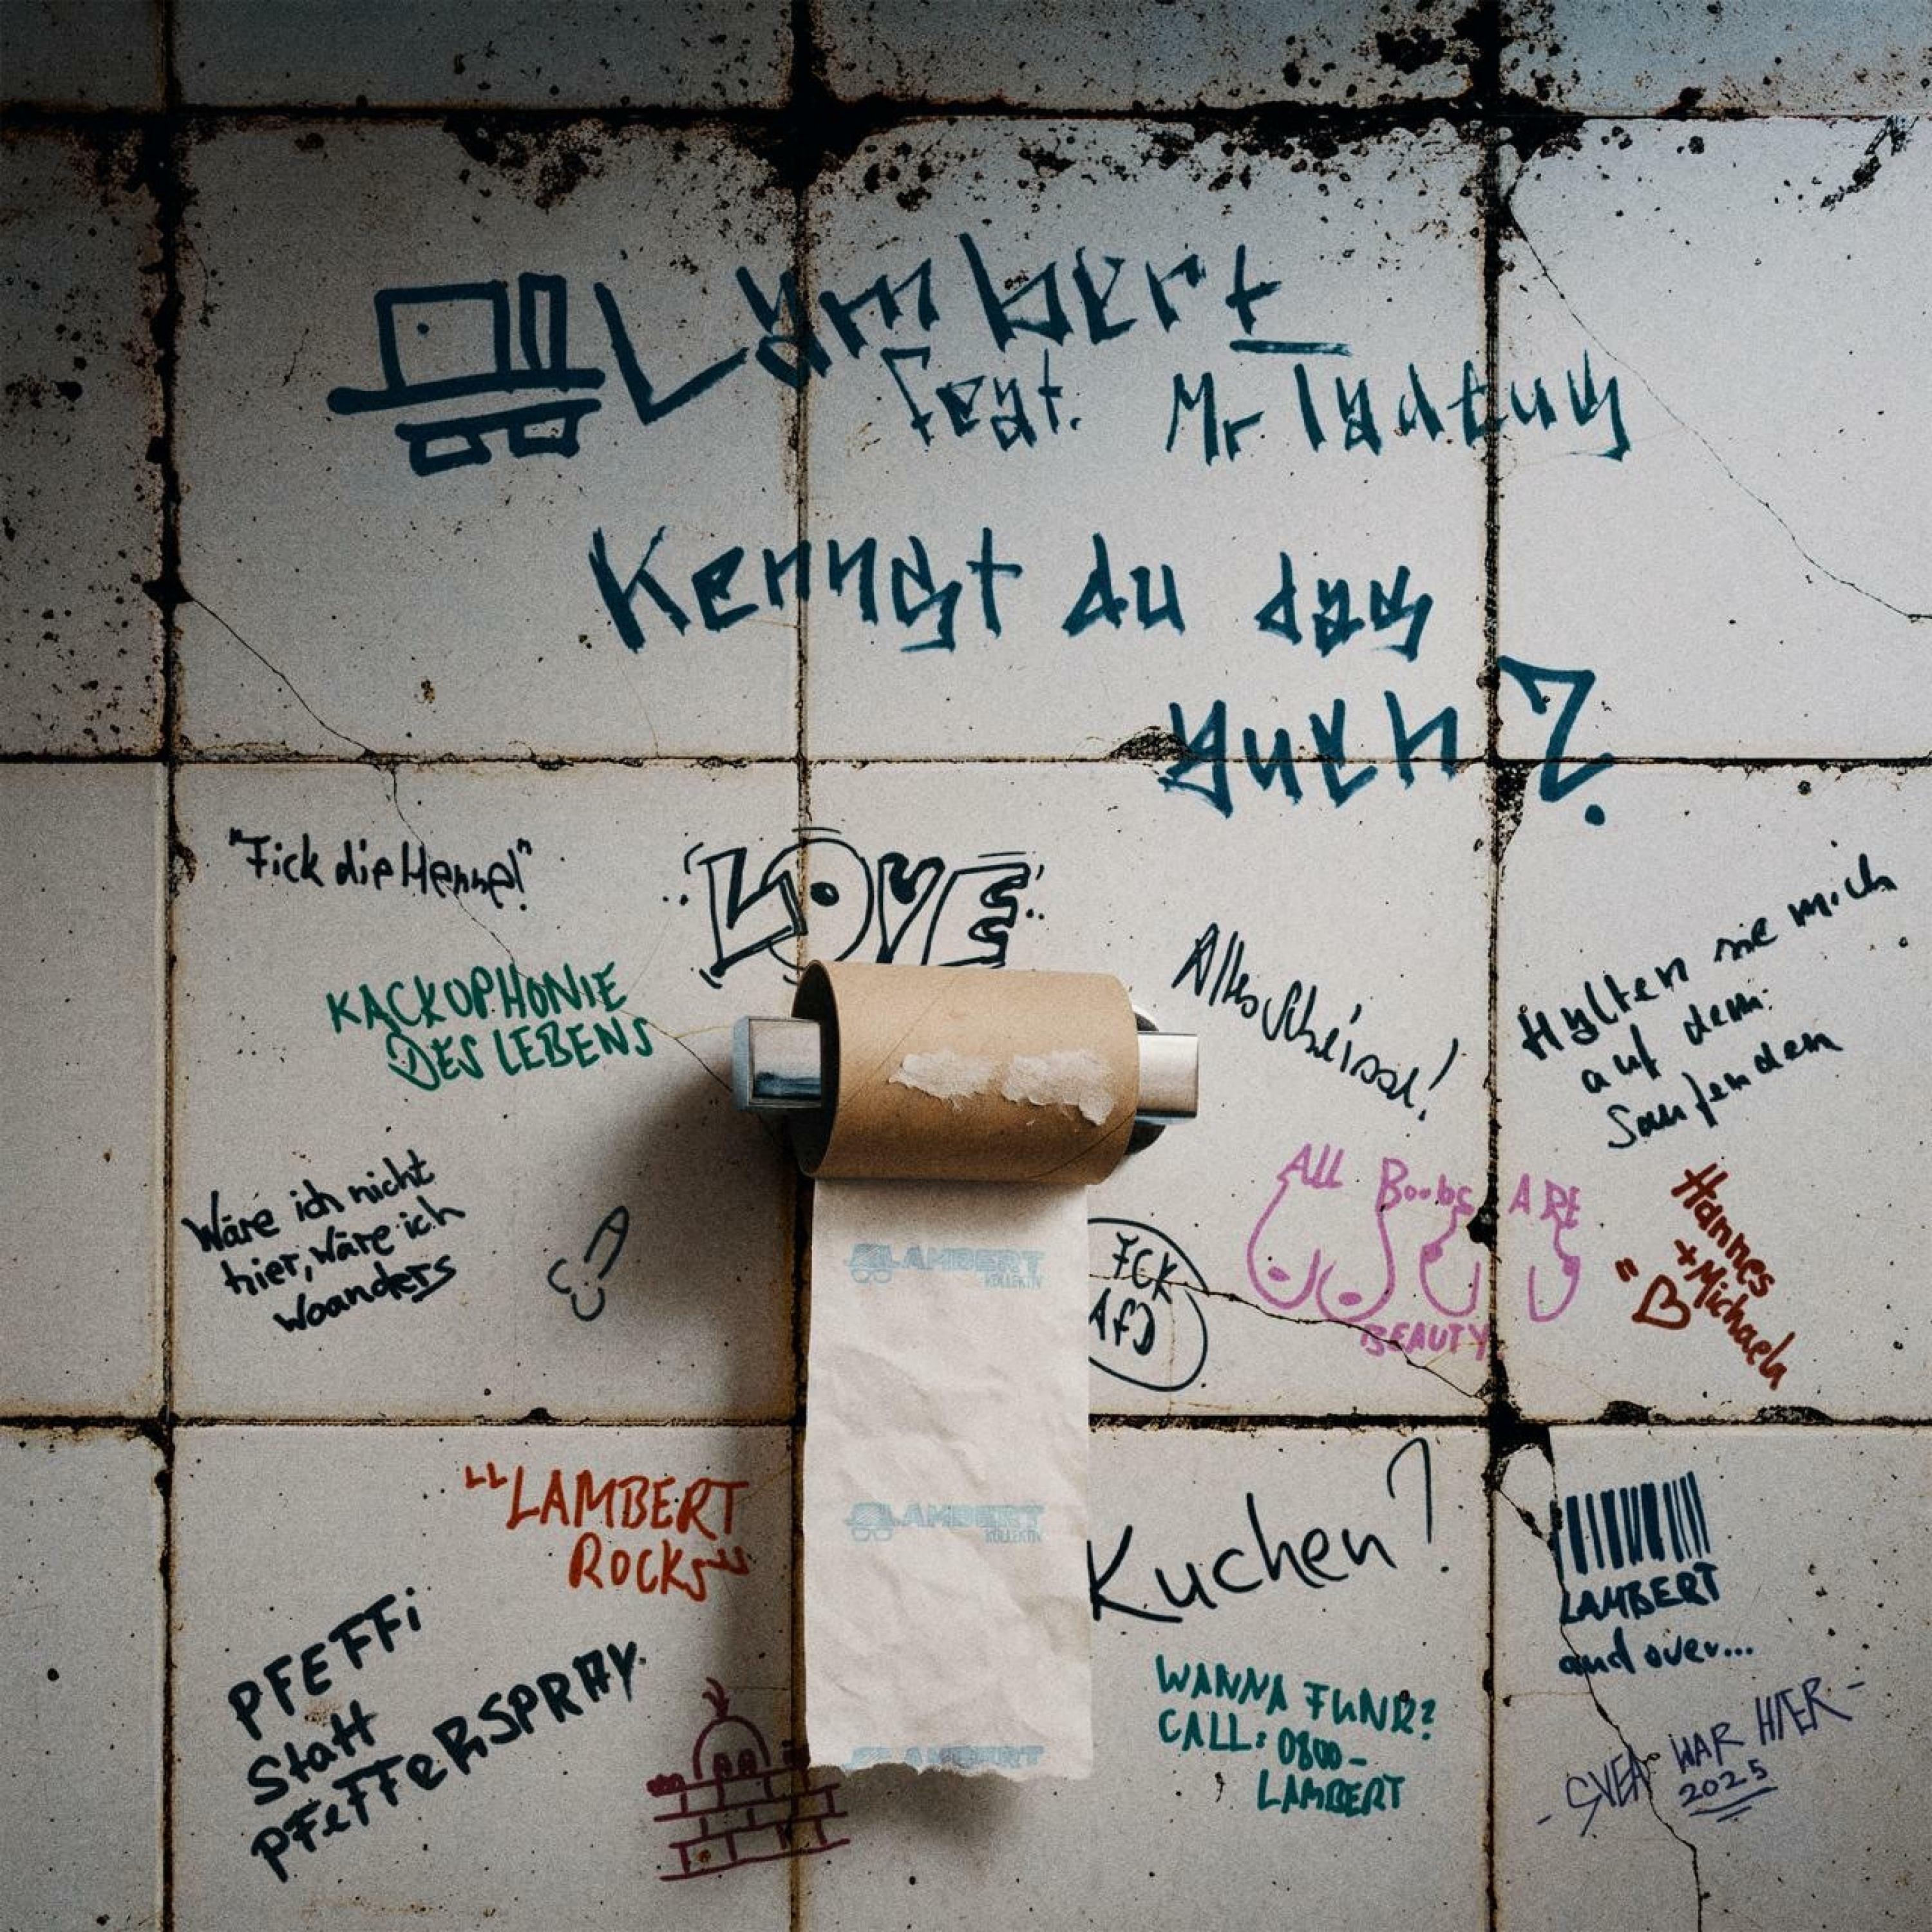 Lambert
feat. Mr Tadeus
Kennst du das
auch?
"Fick die Henne!"
LOVE
KACKOPHONIE
DES LEBENS
Alles Scheisse!
Halten sie mich
auf dem
Laufenden
Wäre ich nicht
hier, wäre ich
woanders
FCK
AFD
ALL Boobs ARE
BEAUTY
Hannes
+Michaela
LAMBERT
KOLLEKTIV
LAMBERT
KOLLEKTIV
LAMBERT
"LAMBERT
ROCKS"
PFEFFi
Statt
PFeFFeRSPRAY
Kuchen?
WANNA FUNK?
CALL: 0800-
LAMBERT
LAMBERT
and over...
- SVEA WAR HIER -
2025